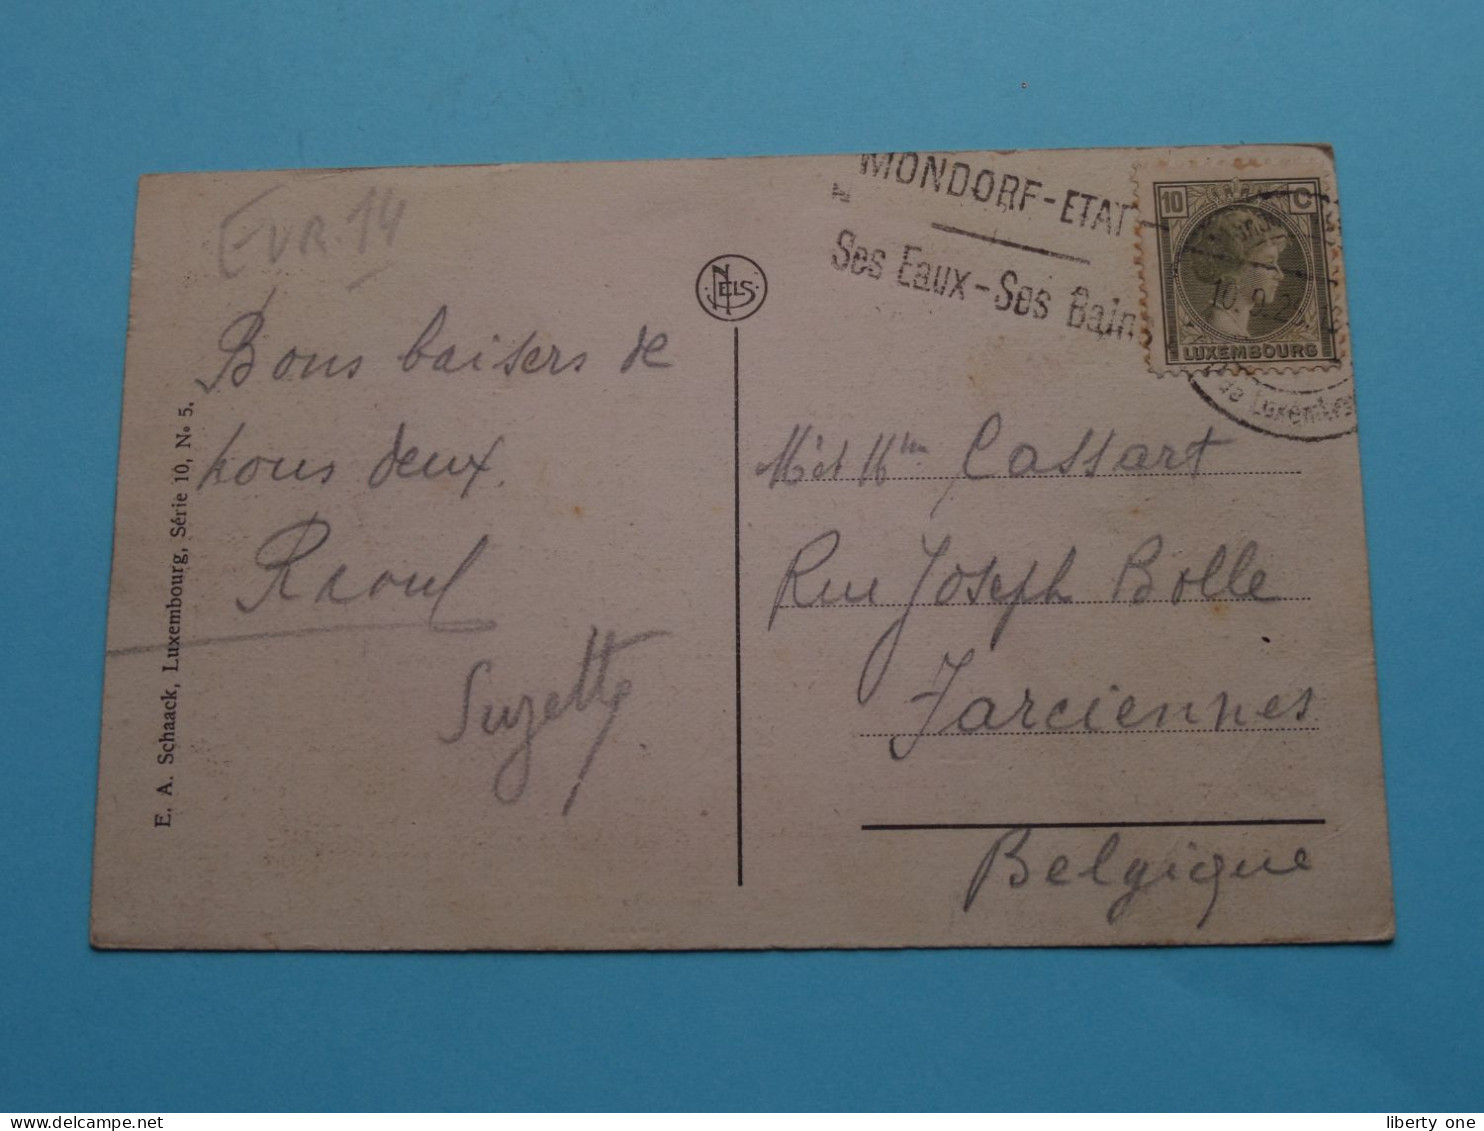 EVR. 14
Bons baisers de
nous deux.
Raoul
Suzette
E. A. Schaack, Luxembourg, Série 10, No 5.
NELS
MONDORF-ETAT
Ses Eaux - Ses Bain
10 C
LUXEMBOURG
10.9.2
de Luxemb
Mr et Mme Cassart
Rue Joseph Bolle
Farciennes
Belgique
liberty one